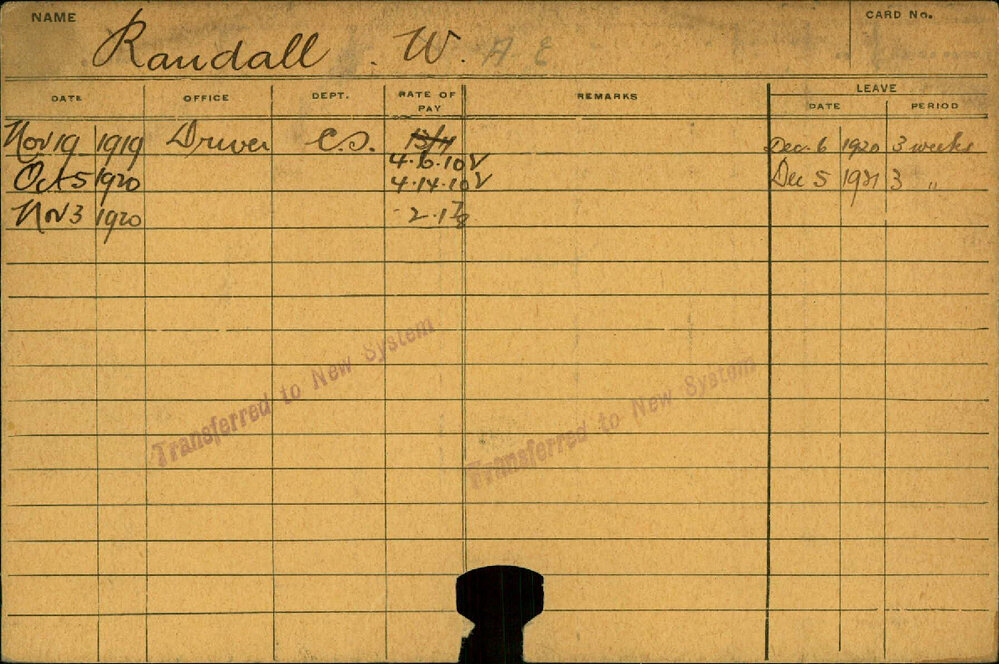 NAME CARD No.
Randall . W. A E
DATE OFFICE DEPT. RATE OF PAY REMARKS LEAVE
DATE PERIOD
Nov 19 1919 Driver C.S. Dec. 6 1920 3 weeks
4.6.10
Oct 5 1920 4.14.10 Dec 5 1921 3 "
Nov 3 1920
Transferred to New System
Transferred to New System